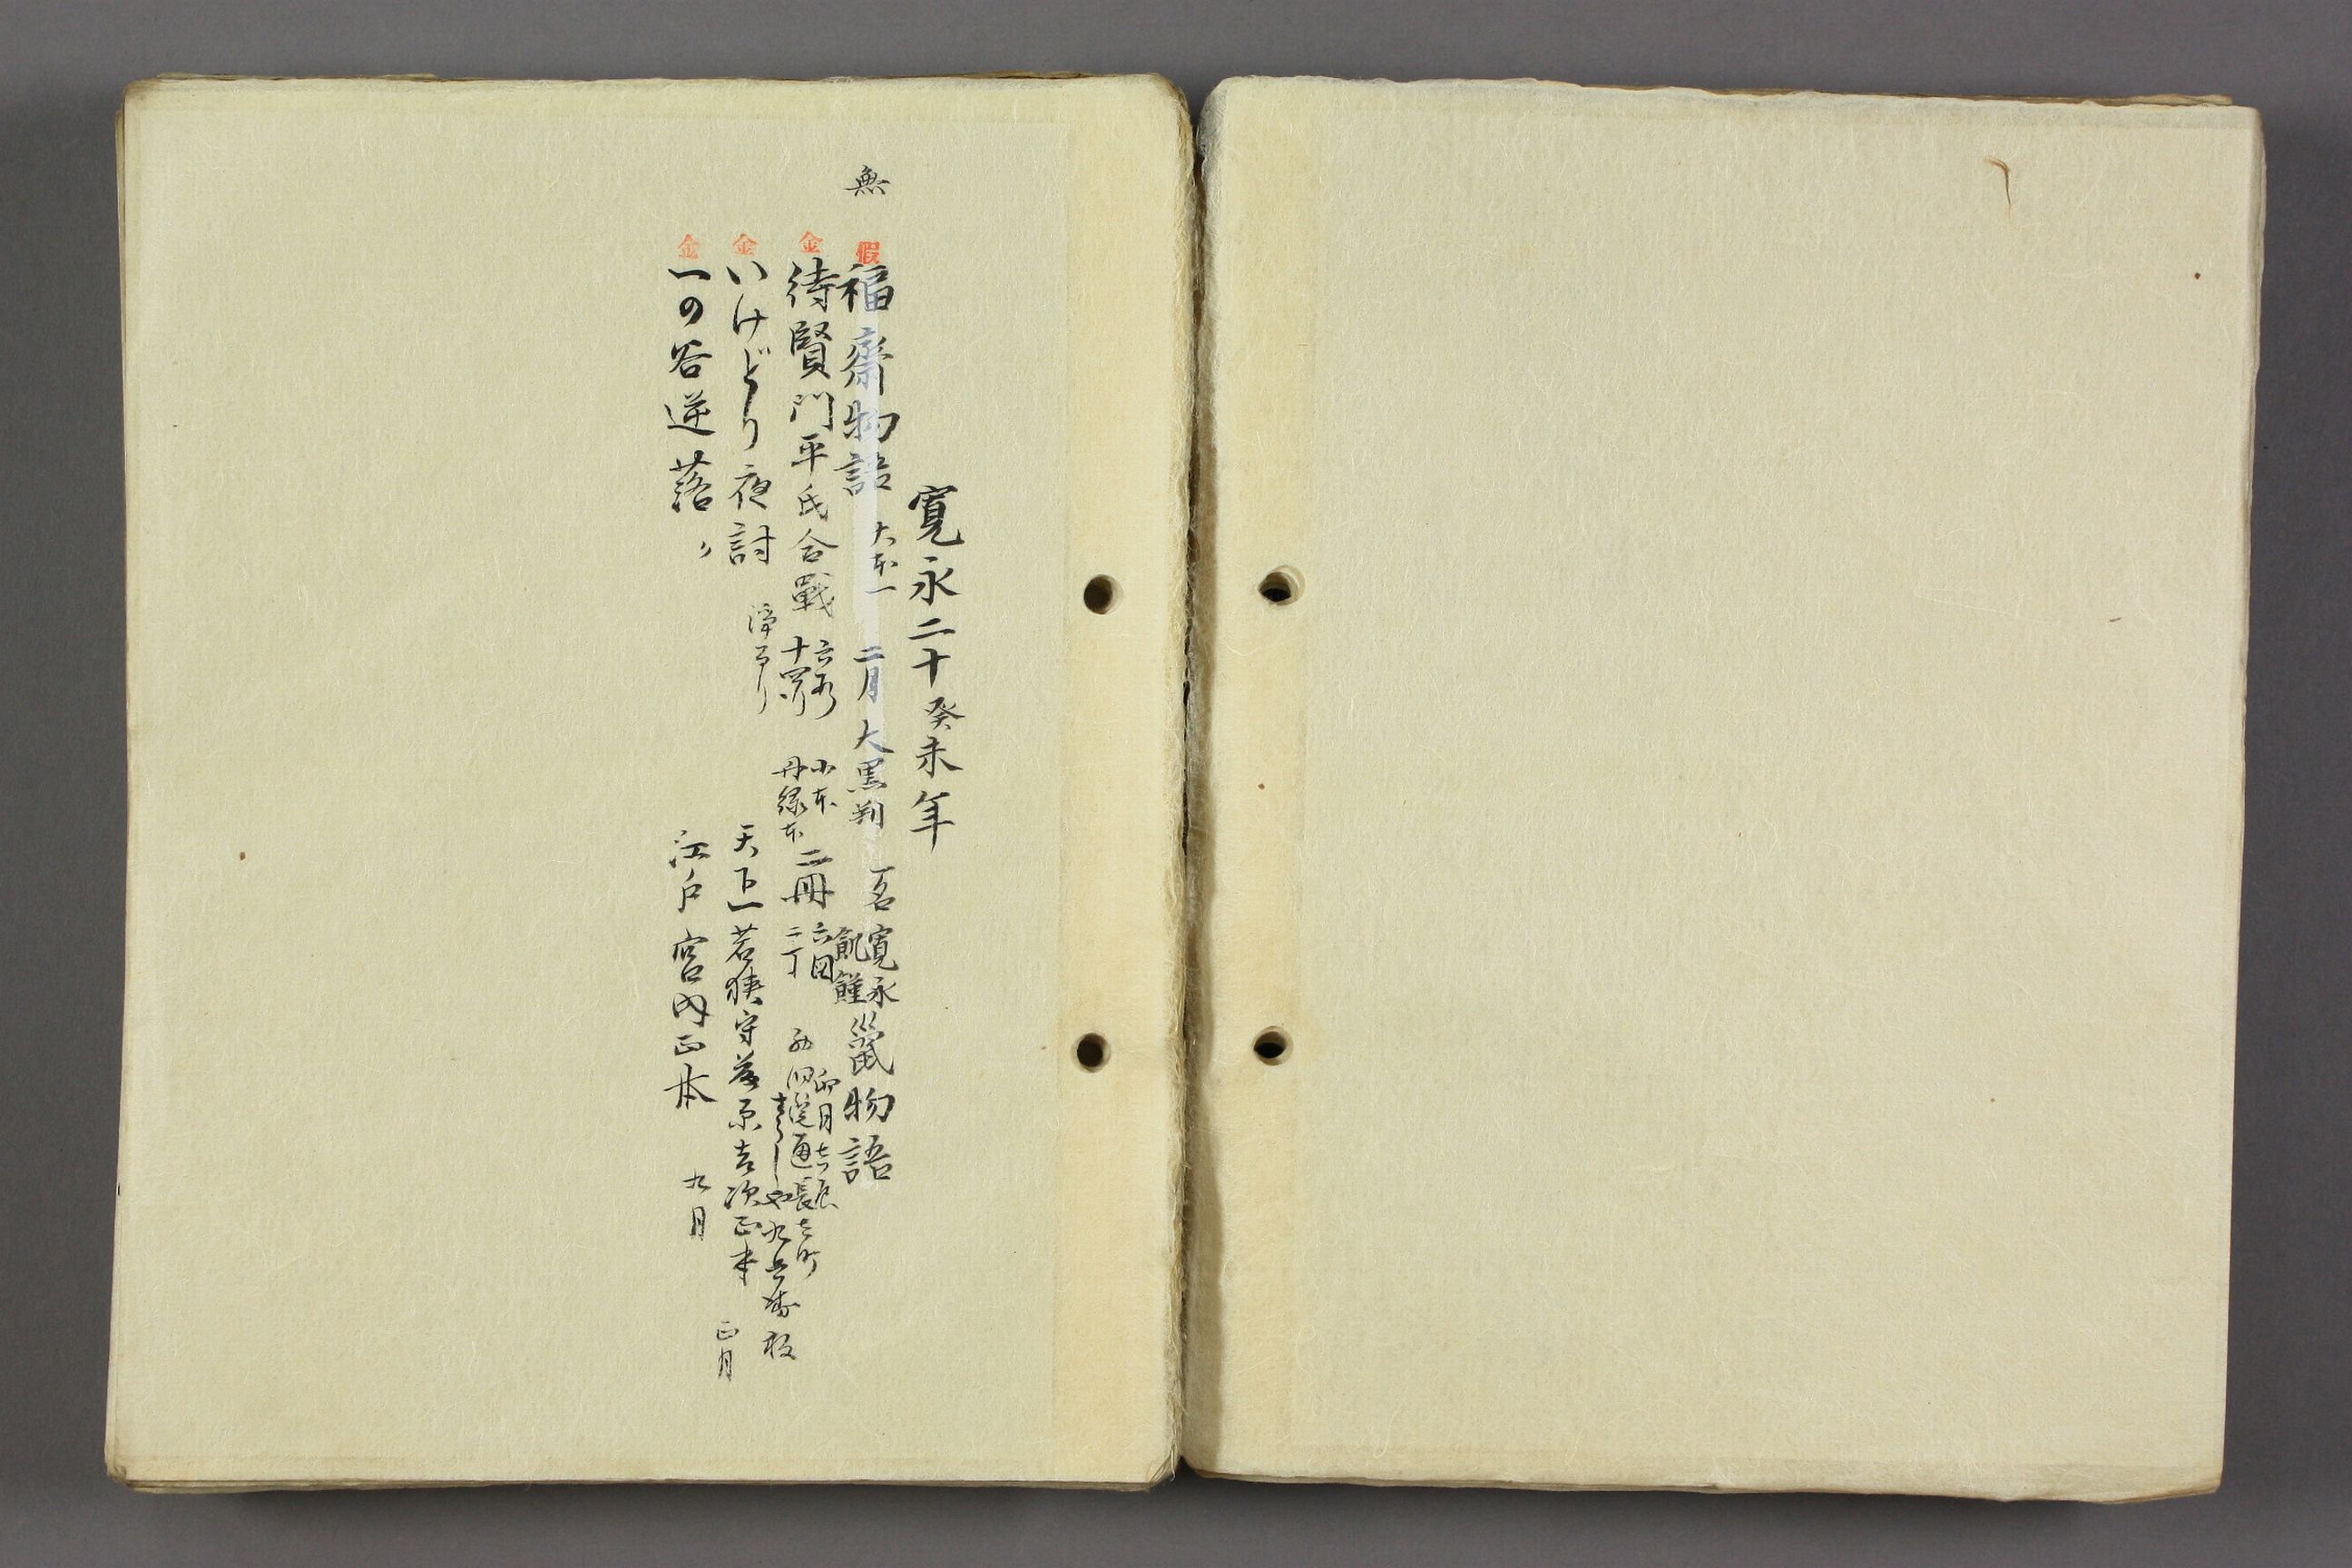 寛永二十癸未年
無 假 福齋物語 大本一 二月 大黒朔 一名 寛永飢饉鼠物語
金 待賢門平氏合戰 六段 十四行 小本 丹緑本 二冊 六図 二丁 卯月吉辰 西洞院通長者町 さうしや九兵衛板
金 いけどり夜討 浄るり 天下一若狭守藤原吉次正本 正月
金 一の谷逆落 〃 江戸宮内正本 九月